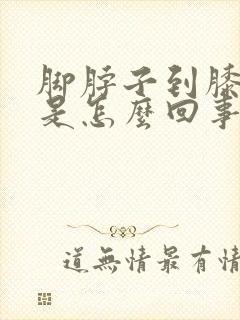 脚脖子到膝
是怎麼回事
道無情最有情